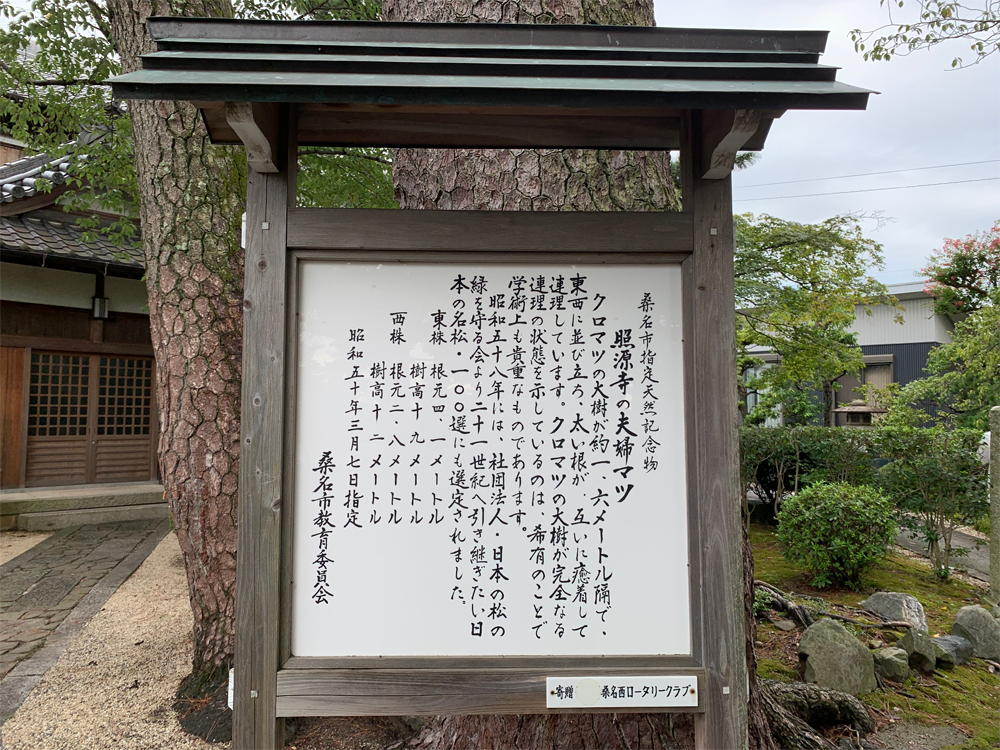 桑名市指定天然記念物
照源寺の夫婦マツ
クロマツの大樹が約一、六メートル隔で、
東西に並び立ち、太い根が、互いに癒着して
連理しています。クロマツの大樹が完全なる
連理の状態を示しているのは、希有のことで
学術上も貴重なものであります。
昭和五十八年には、社団法人・日本の松の
緑を守る会より二十一世紀へ引き継ぎたい日
本の名松・一〇〇選にも選定されました。
東株 根元四、一メートル
樹高十九メートル
西株 根元二、八メートル
樹高十二メートル
昭和五十年三月七日指定
桑名市教育委員会
寄贈 桑名西ロータリークラブ